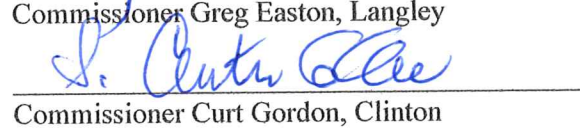 Commissioner Greg Easton, Langley
Commissioner Curt Gordon, Clinton